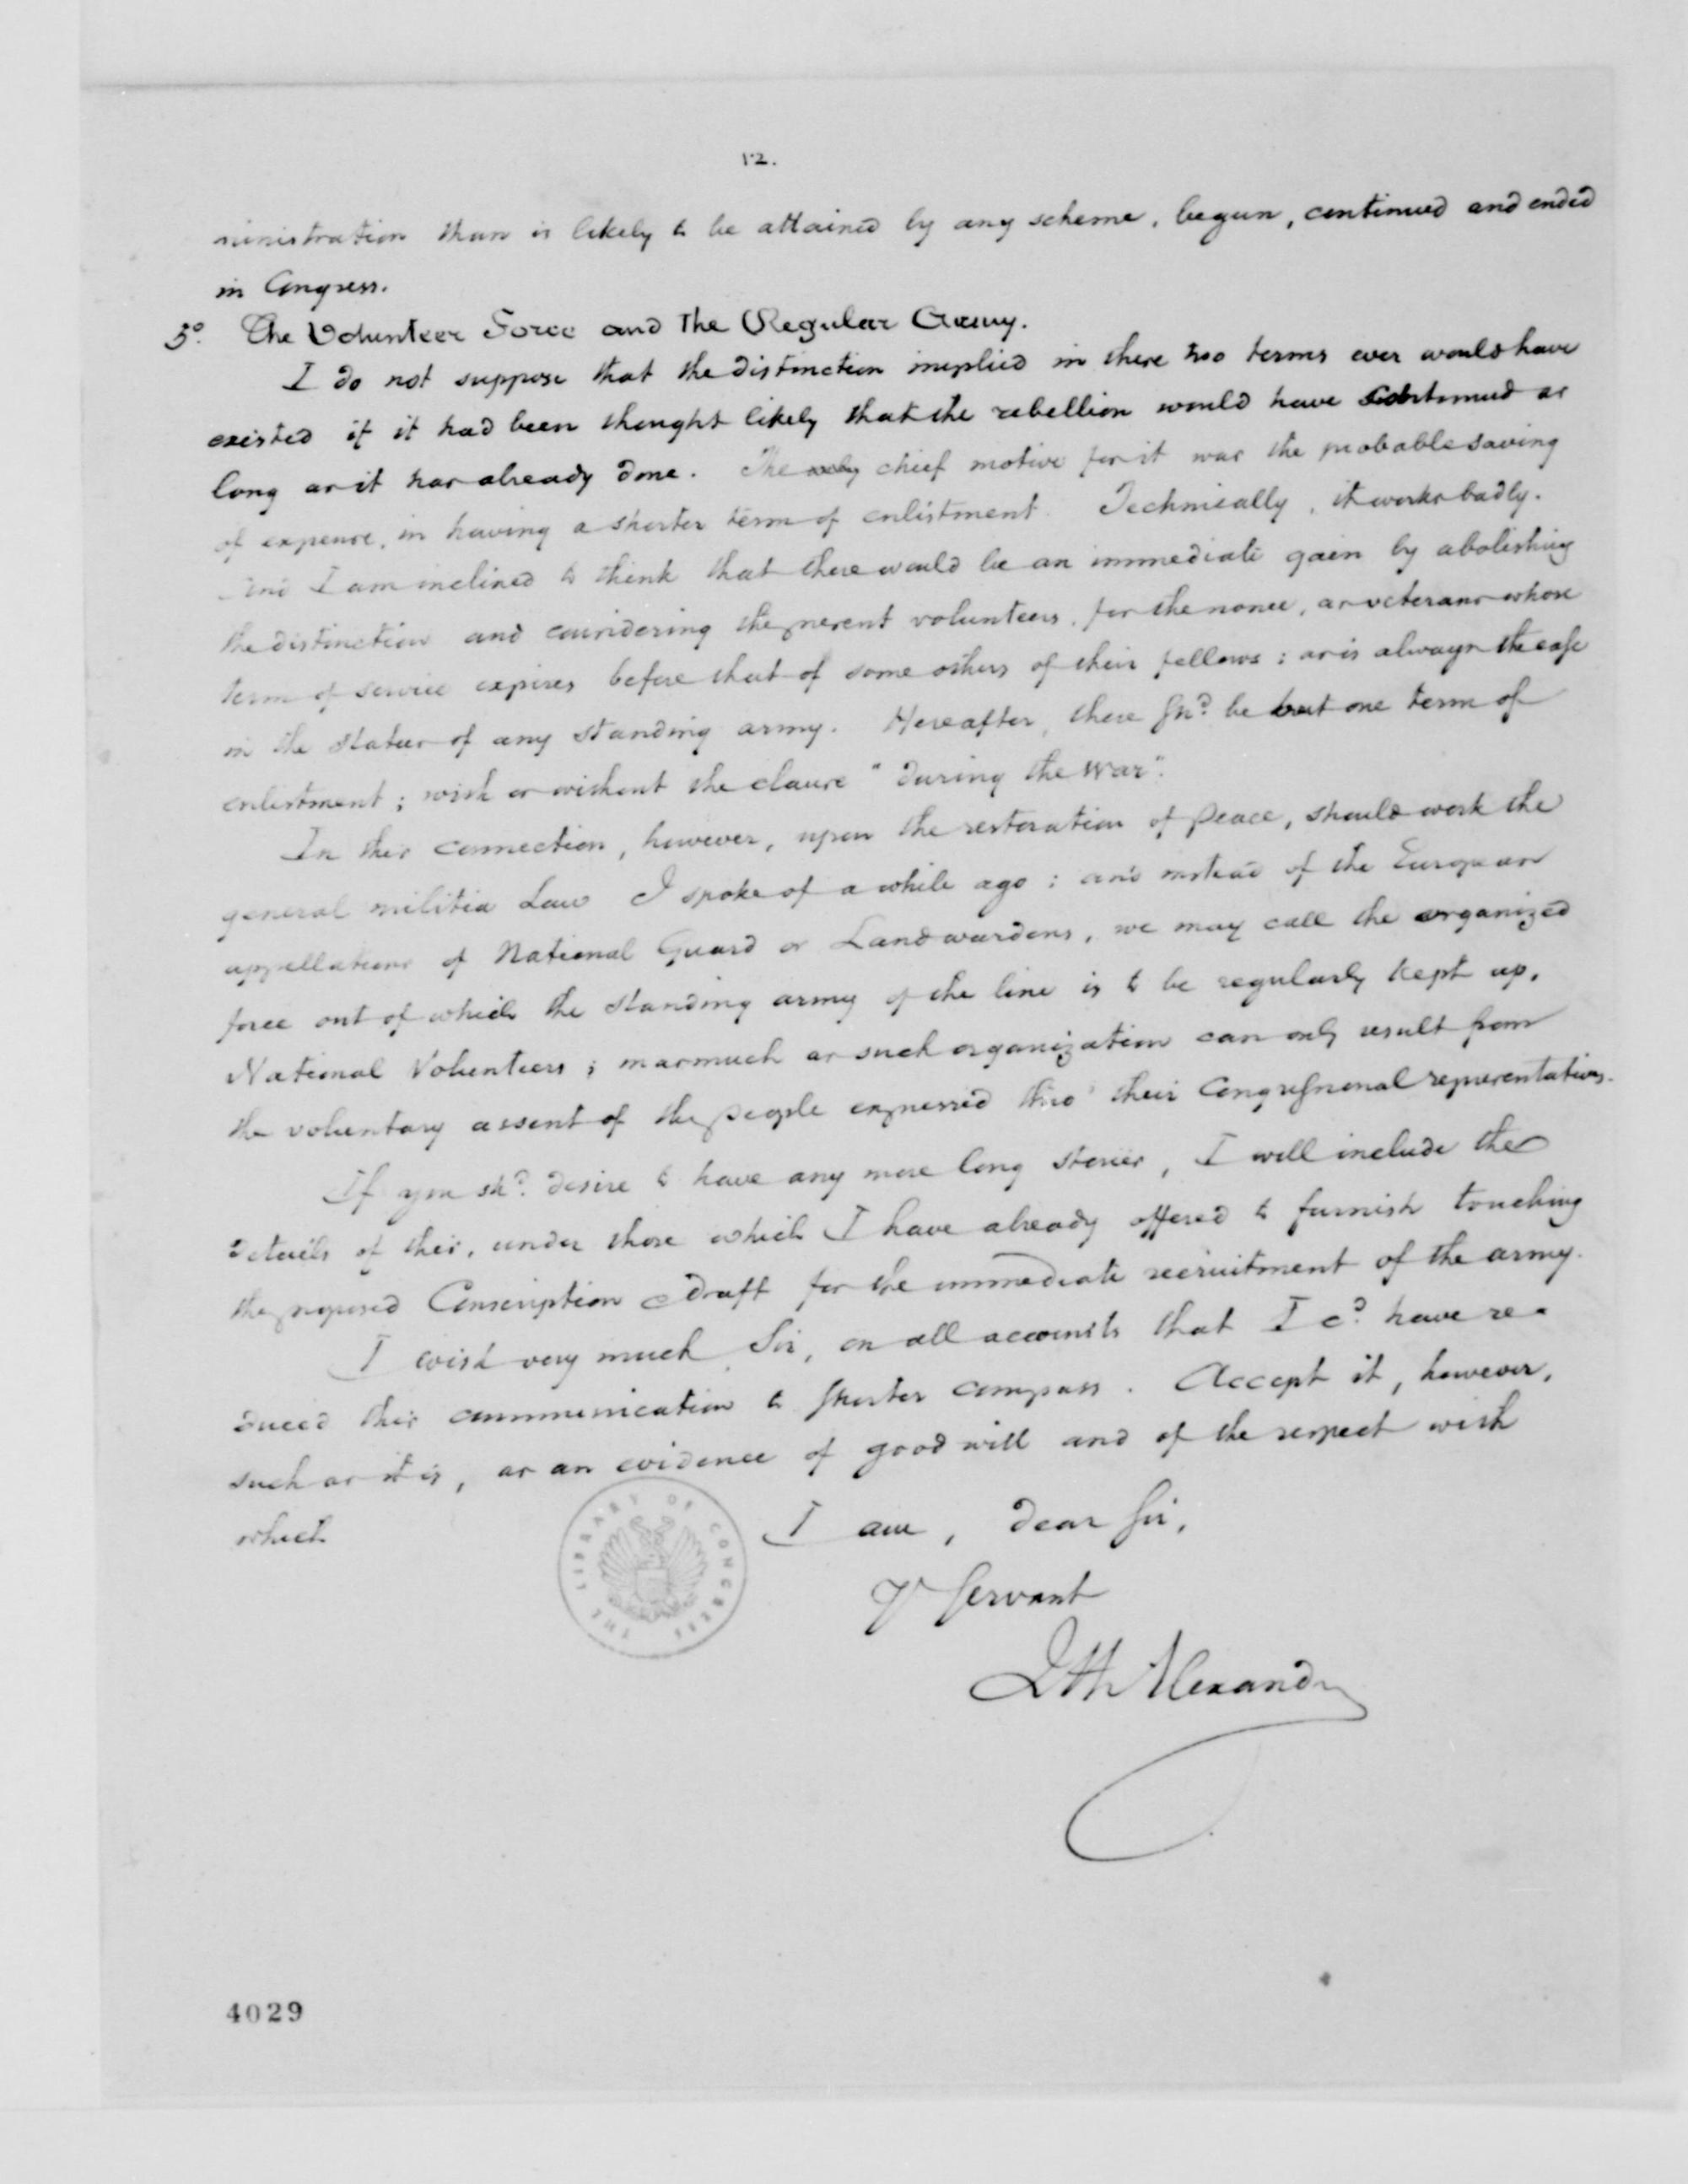 12.
ministration than is likely to be attained by any scheme, begun, continued and ended
in Congress.
5º. The Volunteer Force and the Regular Army.
I do not suppose that the distinction implied in these two terms ever would have
existed if it had been thought likely that the rebellion would have continued as
long as it has already done. The only chief motive for it was the probable saving
of expense, in having a shorter term of enlistment. Technically, it works badly.
And I am inclined to think that there would be an immediate gain by abolishing
the distinction and considering the present volunteers, for the nonce, as veterans whose
term of service expires before that of some others of their fellows: as is always the case
in the status of any standing army. Hereafter, there shd. be but one term of
enlistment; with or without the clause "during the war".
In this connection, however, upon the restoration of peace, should work the
general militia Law I spoke of a while ago: and instead of the European
appellations of National Guard or Landwardens, we may call the organized
force out of which the standing army of the line is to be regularly kept up,
National Volunteers; inasmuch as such organization can only result from
the voluntary assent of the people expressed thro' their Congressional representatives.
If you shd. desire to have any more long stories, I will include the
details of this, under those which I have already offered to furnish touching
the proposed Conscription Draft for the immediate recruitment of the army.
I wish very much, Sir, on all accounts that I cd. have re-
duced this communication to shorter compass. Accept it, however,
such as it is, as an evidence of good will and of the respect with
which
I am, dear Sir,
Yr Servant
JH Alexander
THE LIBRARY OF CONGRESS
4029